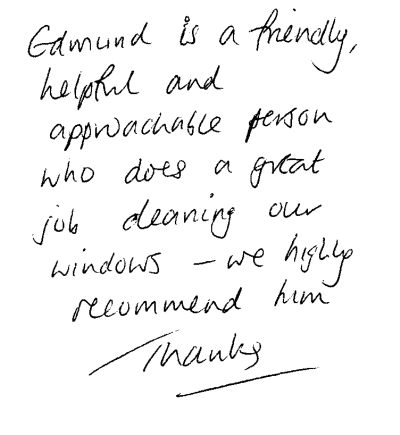 Edmund is a friendly,
helpful and
approachable person
who does a great
job cleaning our
windows – we highly
recommend him
Thanks